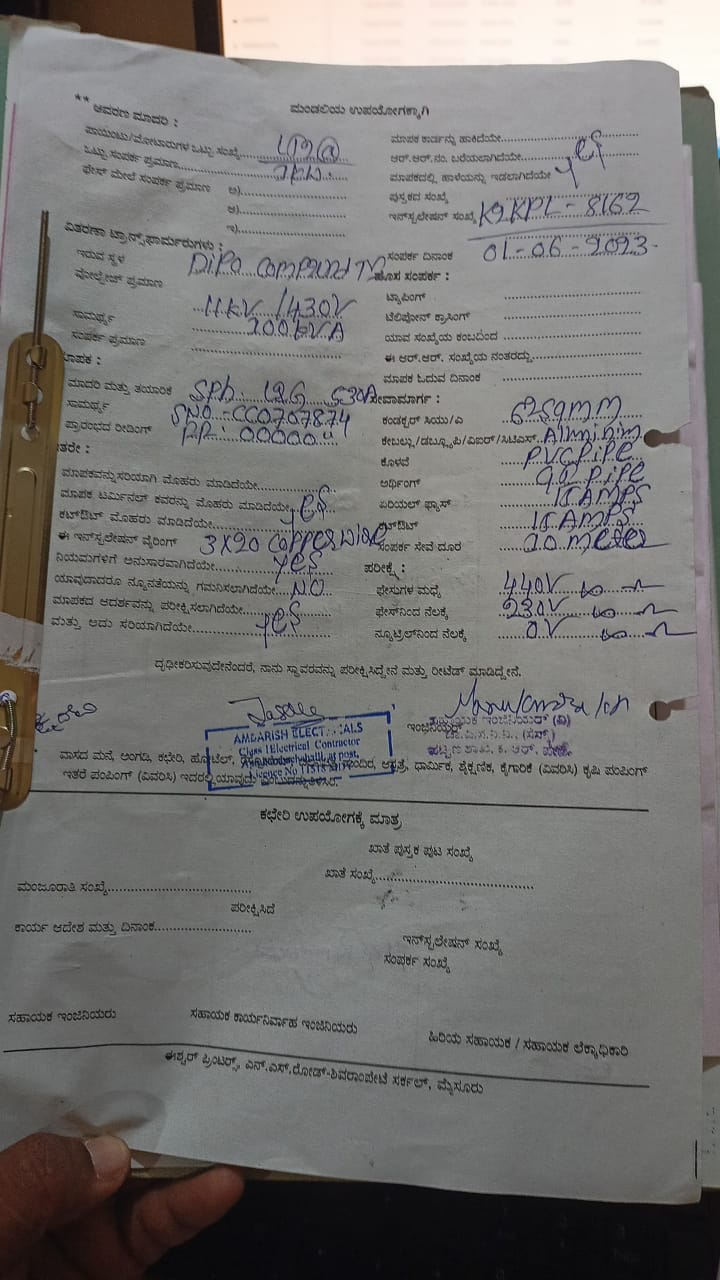 ** ಆವರಣ ಮಾದರಿ :
ಮಂಡಲಿಯ ಉಪಯೋಗಕ್ಕಾಗಿ
ಪಾಯಿಂಟು/ಮೋಟಾರುಗಳ ಒಟ್ಟು ಸಂಖ್ಯೆ
ಒಟ್ಟು ಸಂಪರ್ಕ ಪ್ರಮಾಣ
ಫೇಸ್ ಮೇಲೆ ಸಂಪರ್ಕ ಪ್ರಮಾಣ ಅ)
ಆ)
ಇ)
ಮಾಪಕ ಕಾರ್ಡನ್ನು ಹಾಕಿದೆಯೇ
ಆರ್.ಆರ್.ನಂ. ಬರೆಯಲಾಗಿದೆಯೇ Yes
ಮಾಪಕದಲ್ಲಿ ಹಾಳೆಯನ್ನು ಇಡಲಾಗಿದೆಯೇ
ಪುಸ್ತಕದ ಸಂಖ್ಯೆ
ಇನ್‌ಸ್ಟಲೇಷನ್ ಸಂಖ್ಯೆ KJKPL - 8162
ಸಂಪರ್ಕ ದಿನಾಂಕ 01-06-2023
ವಿತರಣಾ ಟ್ರಾನ್ಸ್‌ಫಾರ್ಮರುಗಳು :
ಇರುವ ಸ್ಥಳ DiPo Compound
ವೋಲ್ಟೇಜ್ ಪ್ರಮಾಣ 11KV/430V
ಸಾಮರ್ಥ್ಯ 200KVA
ಸಂಪರ್ಕ ಪ್ರಮಾಣ
ಹೊಸ ಸಂಪರ್ಕ :
ಟ್ಯಾಪಿಂಗ್
ಟೆಲಿಫೋನ್ ಕ್ರಾಸಿಂಗ್
ಯಾವ ಸಂಖ್ಯೆಯ ಕಂಬದಿಂದ
ಈ ಆರ್.ಆರ್. ಸಂಖ್ಯೆಯ ನಂತರದ್ದು
ಮಾಪಕ ಓದುವ ದಿನಾಂಕ
ಮಾಪಕ :
ಮಾದರಿ ಮತ್ತು ತಯಾರಿಕೆ SPh L&G 530A
ಸಾಮರ್ಥ್ಯ SNO - CC0707874
ಪ್ರಾರಂಭದ ರೀಡಿಂಗ್ RR: 00000
ಸೇವಾಮಾರ್ಗ :
ಕಂಡಕ್ಟರ್ ಸಿಯು/ಎ 6Sqmm
ಕೇಬಲ್ಲು/ಡಬ್ಲ್ಯೂಪಿ/ವಿಐಆರ್/ಸಿಟಿಎಸ್ Alluminim
ಕೊಳವೆ PVC PiPe
ಅರ್ಥಿಂಗ್ GI PiPe
ಏರಿಯಲ್ ಫ್ಯೂಸ್ 15 AMPS
ಕಟ್‌ಔಟ್ 15 AMPS
ಸಂಪರ್ಕ ಸೇವೆ ದೂರ 20 meter
ಇತರೇ :
ಮಾಪಕವನ್ನು ಸರಿಯಾಗಿ ಮೊಹರು ಮಾಡಿದೆಯೇ
ಮಾಪಕ ಟರ್ಮಿನಲ್ ಕವರನ್ನು ಮೊಹರು ಮಾಡಿದೆಯೇ Yes
ಕಟ್‌ಔಟ್ ಮೊಹರು ಮಾಡಿದೆಯೇ
ಈ ಇನ್‌ಸ್ಟಲೇಷನ್ ವೈರಿಂಗ್ 3X20 Copper Wire
ನಿಯಮಗಳಿಗೆ ಅನುಸಾರವಾಗಿದೆಯೇ Yes
ಯಾವುದಾದರೂ ನ್ಯೂನತೆಯನ್ನು ಗಮನಿಸಲಾಗಿದೆಯೇ NO
ಮಾಪಕದ ಆದರ್ಶವನ್ನು ಪರೀಕ್ಷಿಸಲಾಗಿದೆಯೇ
ಮತ್ತು ಅದು ಸರಿಯಾಗಿದೆಯೇ Yes
ಪರೀಕ್ಷೆ :
ಫೇಸುಗಳ ಮಧ್ಯೆ 440V
ಫೇಸ್‌ನಿಂದ ನೆಲಕ್ಕೆ 230V
ನ್ಯೂಟ್ರಲ್‌ನಿಂದ ನೆಲಕ್ಕೆ 0V
ದೃಢೀಕರಿಸುವುದೇನೆಂದರೆ, ನಾನು ಸ್ಥಾವರವನ್ನು ಪರೀಕ್ಷಿಸಿದ್ದೇನೆ ಮತ್ತು ರೀಟೆಡ್ ಮಾಡಿದ್ದೇನೆ.
AMBARISH ELECTRICALS
Class I Electrical Contractor
ಇಂಜಿನಿಯರ್
ವಾಸದ ಮನೆ, ಅಂಗಡಿ, ಕಛೇರಿ, ಹೋಟೆಲ್, ಮಂದಿರ, ಆಸ್ಪತ್ರೆ, ಧಾರ್ಮಿಕ, ಶೈಕ್ಷಣಿಕ, ಕೈಗಾರಿಕೆ (ವಿವರಿಸಿ) ಕೃಷಿ ಪಂಪಿಂಗ್
ಇತರೆ ಪಂಪಿಂಗ್ (ವಿವರಿಸಿ) ಇದರಲ್ಲಿ ಯಾವುದು ಎಂಬುದನ್ನು ತಿಳಿಸಿರಿ.
ಕಛೇರಿ ಉಪಯೋಗಕ್ಕೆ ಮಾತ್ರ
ಖಾತೆ ಪುಸ್ತಕ ಪುಟ ಸಂಖ್ಯೆ
ಖಾತೆ ಸಂಖ್ಯೆ
ಮಂಜೂರಾತಿ ಸಂಖ್ಯೆ
ಪರೀಕ್ಷಿಸಿದೆ
ಕಾರ್ಯ ಆದೇಶ ಮತ್ತು ದಿನಾಂಕ
ಇನ್‌ಸ್ಟಲೇಷನ್ ಸಂಖ್ಯೆ
ಸಂಪರ್ಕ ಸಂಖ್ಯೆ
ಸಹಾಯಕ ಇಂಜಿನಿಯರು
ಸಹಾಯಕ ಕಾರ್ಯನಿರ್ವಾಹ ಇಂಜಿನಿಯರು
ಹಿರಿಯ ಸಹಾಯಕ / ಸಹಾಯಕ ಲೆಕ್ಕಾಧಿಕಾರಿ
ಈಶ್ವರ್ ಪ್ರಿಂಟರ್ಸ್, ಎನ್.ಎಸ್.ರೋಡ್-ಶಿವರಾಂಪೇಟೆ ಸರ್ಕಲ್, ಮೈಸೂರು